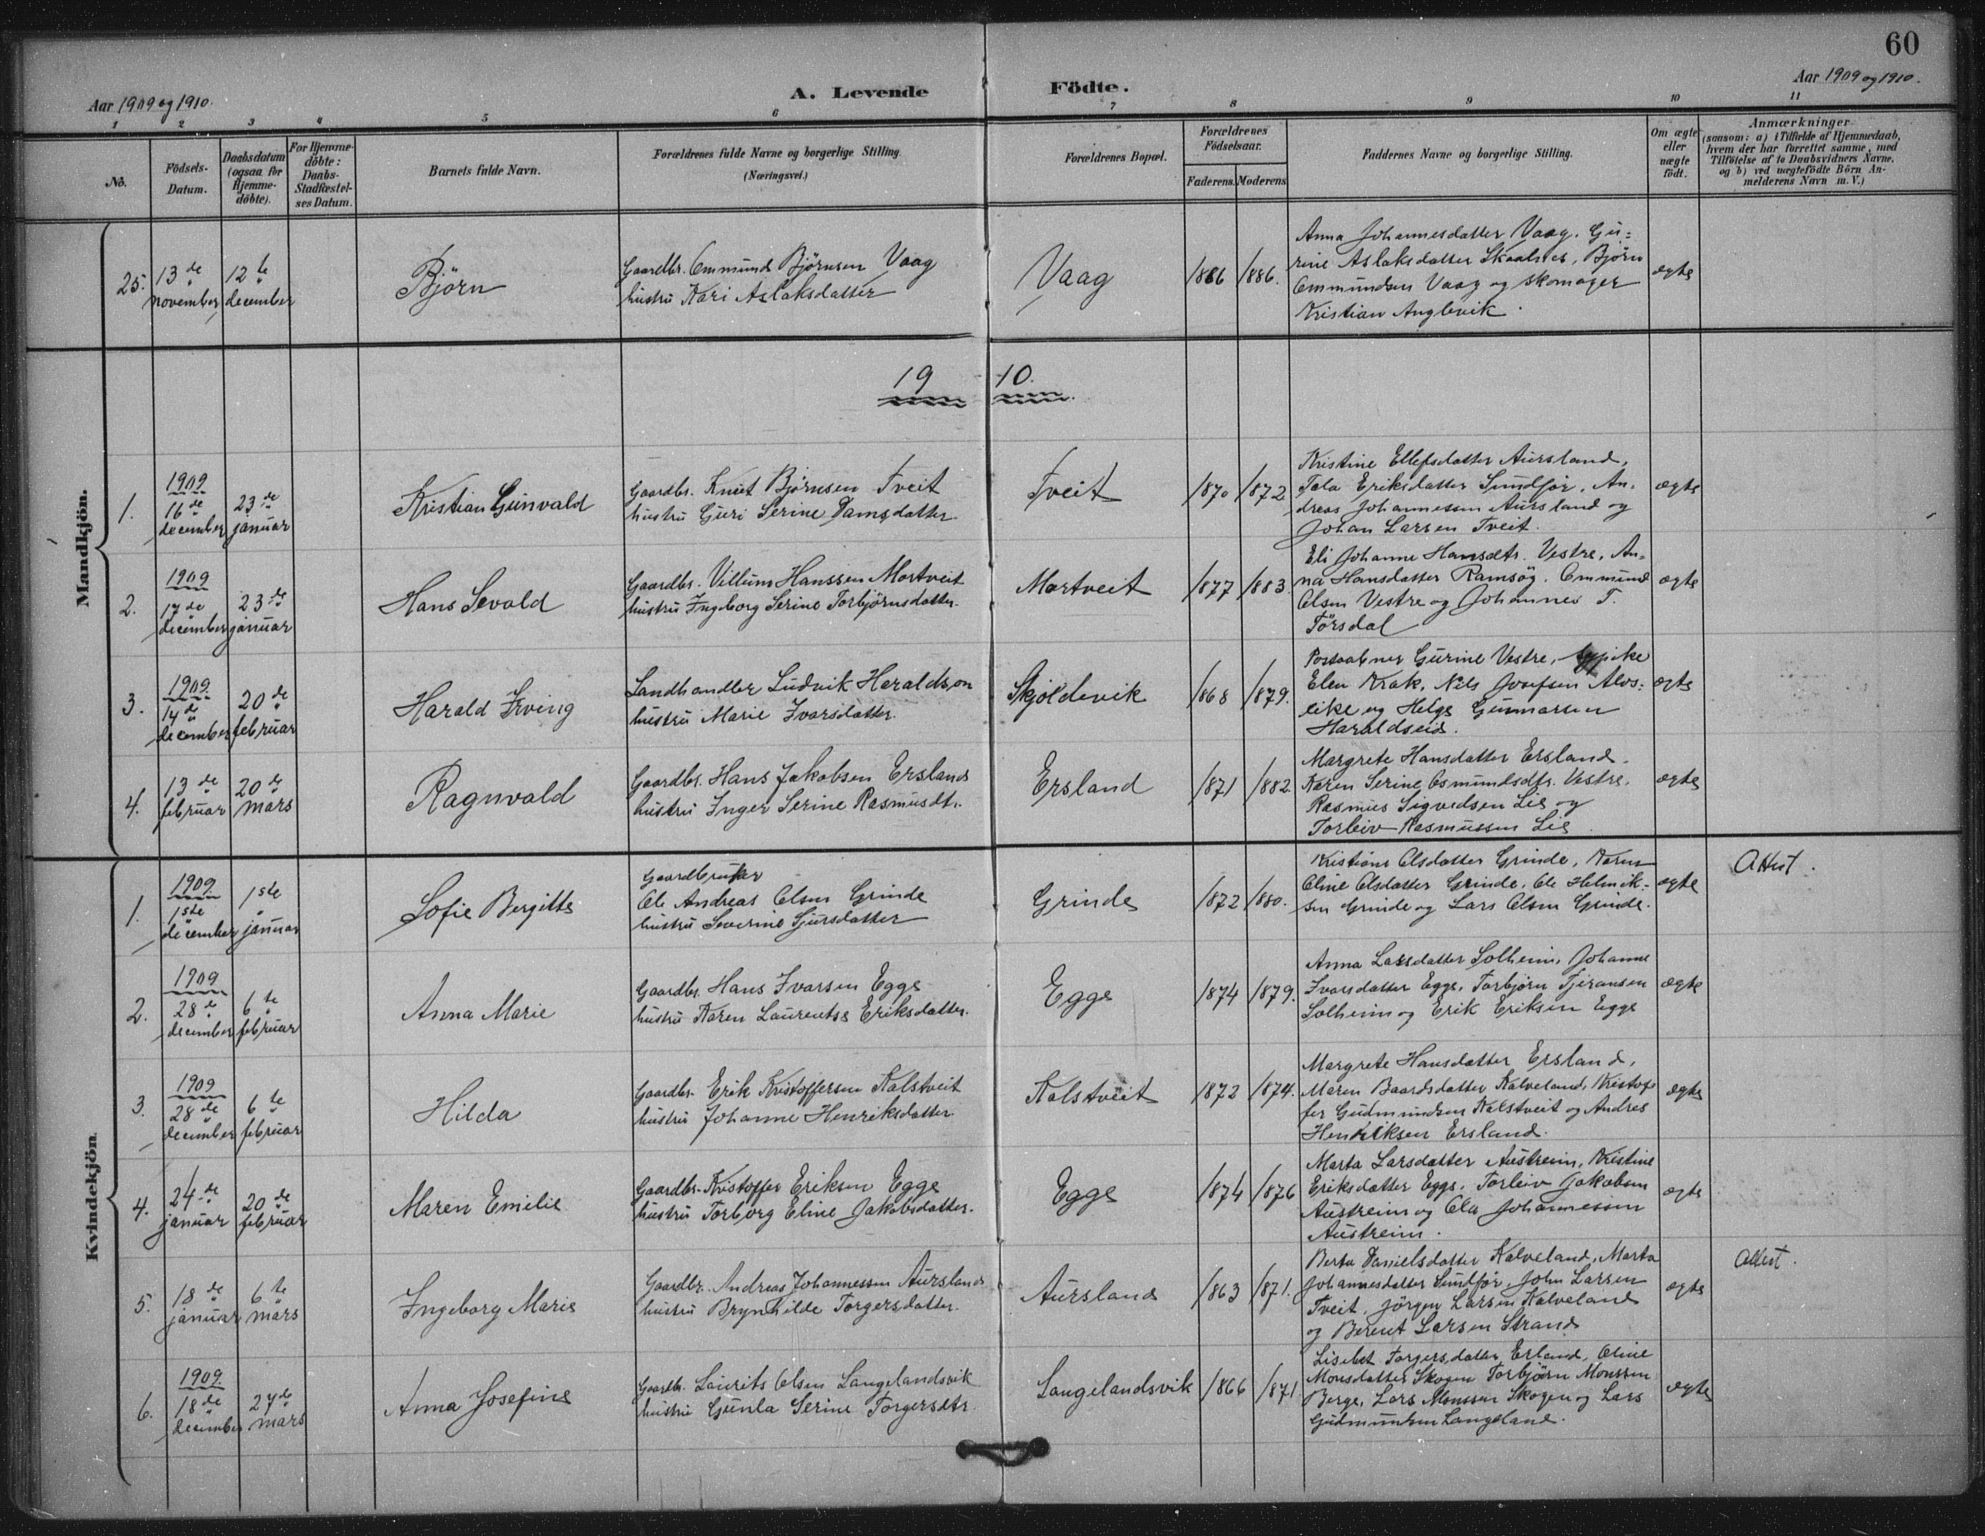 60
Aar 1909 og 1910.
A. Levende Födte.
Aar 1909 og 1910.
1 2 3 4 5 6 7 8 9 10 11
No.
Födsels-
Datum.
Daabsdatum
(ogsaa for
Hjemme-
döbte).
For Hjemme-
döbte:
Daabs-
Stadfæstel-
ses Datum.
Barnets fulde Navn.
Forældrenes fulde Navne og borgerlige Stilling.
(Næringsvei.)
Forældrenes Bopæl.
Forældrenes
Födselsaar.
Faderens. Moderens.
Faddernes Navne og borgerlige Stilling.
Om ægte
eller
uægte
födt.
Anmærkninger
(saasom: a) i Tilfælde af Hjemmedaab,
hvem der har forrettet samme, med
Tilföielse af to Daabsvidners Navne,
og b) ved uægtefödte Börn An-
melderens Navn m. V.)
Mandkjön.
25. 13de november
12te december
Björn
Gaardbr. Ommund Björnsen Vaag
hustru Kari Aslaksdatter
Vaag
1886 1886.
Anna Johannesdatter Vaag. Gu-
rine Aslaksdatter Skaalnes, Björn
Ommundsen Vaag og skomager
Kristian Anglevik.
ægte
19 10.
1. 1909
16de december
23de januar
Kristian Gunvald
Gaardbr. Knut Björnsen Tveit
hustru Guri Serine
Tveit
1870 1872
Kristine Ellefsdatter Aursland,
Eriksdatter Sundför, An-
dreas Johannessen Aursland og
Johan Larsen Tveit.
ægte
2. 1909
17de december
23de januar
Hans Sevald
Gaardbr. Villum Hanssen Mortveit
hustru Ingeborg Serine Torbjörnsdatter.
Mortveit
1877 1883.
Eli Johanne Hansdtr. Vestre, An-
na Hansdatter Ramsög. Ommund
Olsen Vestre og Johannes T.
Törsdal
ægte
3. 1909
14de december
20de februar
Harald Irving
Landhandler Ludvik Heraldson
hustru Marie Ivarsdatter.
Skjoldevik
1868 1879.
Postaabner Gurine Vestre,
Elen Krak, Nils Josefsen Alvs-
eike og Helge Gunnarsen
Haraldseid.
ægte
4. 13de februar
20de mars
Ragnvald
Gaardbr. Hans Jakobsen Ersland
hustru Inger Serine Rasmusdtr.
Ersland
1871 1882
Margrete Hansdatter Ersland.
Karen Serine Osmundsdtr. Vestre.
Rasmus Sigvedsen Lie og
Torleiv Rasmussen Lie
ægte
Kvindekjön.
1. 1909
1ste december
1ste januar
Sofie Bergitte
Gaardbruker
Ole Andreas Olsen Grinde
hustru Severine Sjursdatter
Grinde
1872 1880.
Kristiane Olsdatter Grinde, Karen
Oline Olsdatter Grinde. Ole Helmik-
sen Grinde og Lars Olsen Grinde.
ægte
Attest.
2. 1909
28de december
6te februar
Anna Marie
Gaardbr. Hans Ivarsen Egge
hustru Karen Laurentse Eriksdatter.
Egge
1874 1879.
Anna Larsdatter Solheim, Johanne
Ivarsdatter Egge, Torbjörn Tjeransen
Solheim og Erik Eriksen Egge
ægte
3. 1909
28de december
6te februar
Hilda
Gaardbr. Erik Kristoffersen Kalstveit
hustru Johanne Henriksdatter
Kalstveit
1872 1874.
Margrete Hansdatter Ersland,
Maren Baardsdatter Kalveland, Kristof-
fer Gudmundsen Kalstveit og Andres
Henriksen Ersland.
ægte
4. 24de januar
20de februar
Maren Emilie
Gaardbr. Kristoffer Eriksen Egge
hustru Torborg Eline Jakobsdatter.
Egge
1874 1876
Marta Larsdatter Austreim, Kristine
Eriksdatter Egge. Torleiv Jakobsen
Austreim og Ola Johannessen
Austreim.
ægte
5. 18de januar
6te mars
Ingeborg Marie
Gaardbr. Andreas Johannessen Aursland
hustru Brynhilde Torgersdatter.
Aursland
1863 1871.
Berta Danielsdatter Kalveland, Marta
Johannesdatter Sundför, John Larsen
Tveit. Jörgen Larsen Kalveland
og Berent Larsen Strand
ægte
Attest.
6. 1909.
18de december
27de mars
Anna Josefine
Gaardbr. Laurits Olsen Langelandsvik
hustru Gunla Serine Torgersdtr.
Langelandsvik
1866 1871.
Lisebet Torgersdatter Erland, Oline
Monsdatter Skogen Torbjörn Monssen
Berge, Lars Monssen Skogen og Lars
Gudmundsen Langeland.
ægte